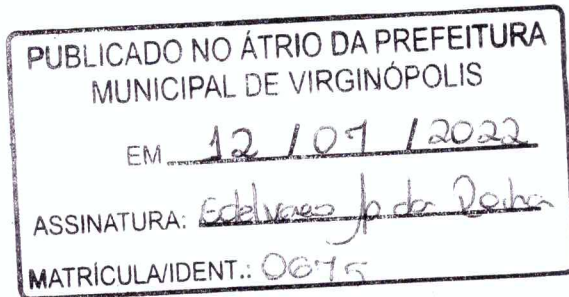 PUBLICADO NO ÁTRIO DA PREFEITURA
MUNICIPAL DE VIRGINÓPOLIS
EM 12 / 07 / 2022
ASSINATURA: da Rocha
MATRÍCULA/IDENT.: 0675